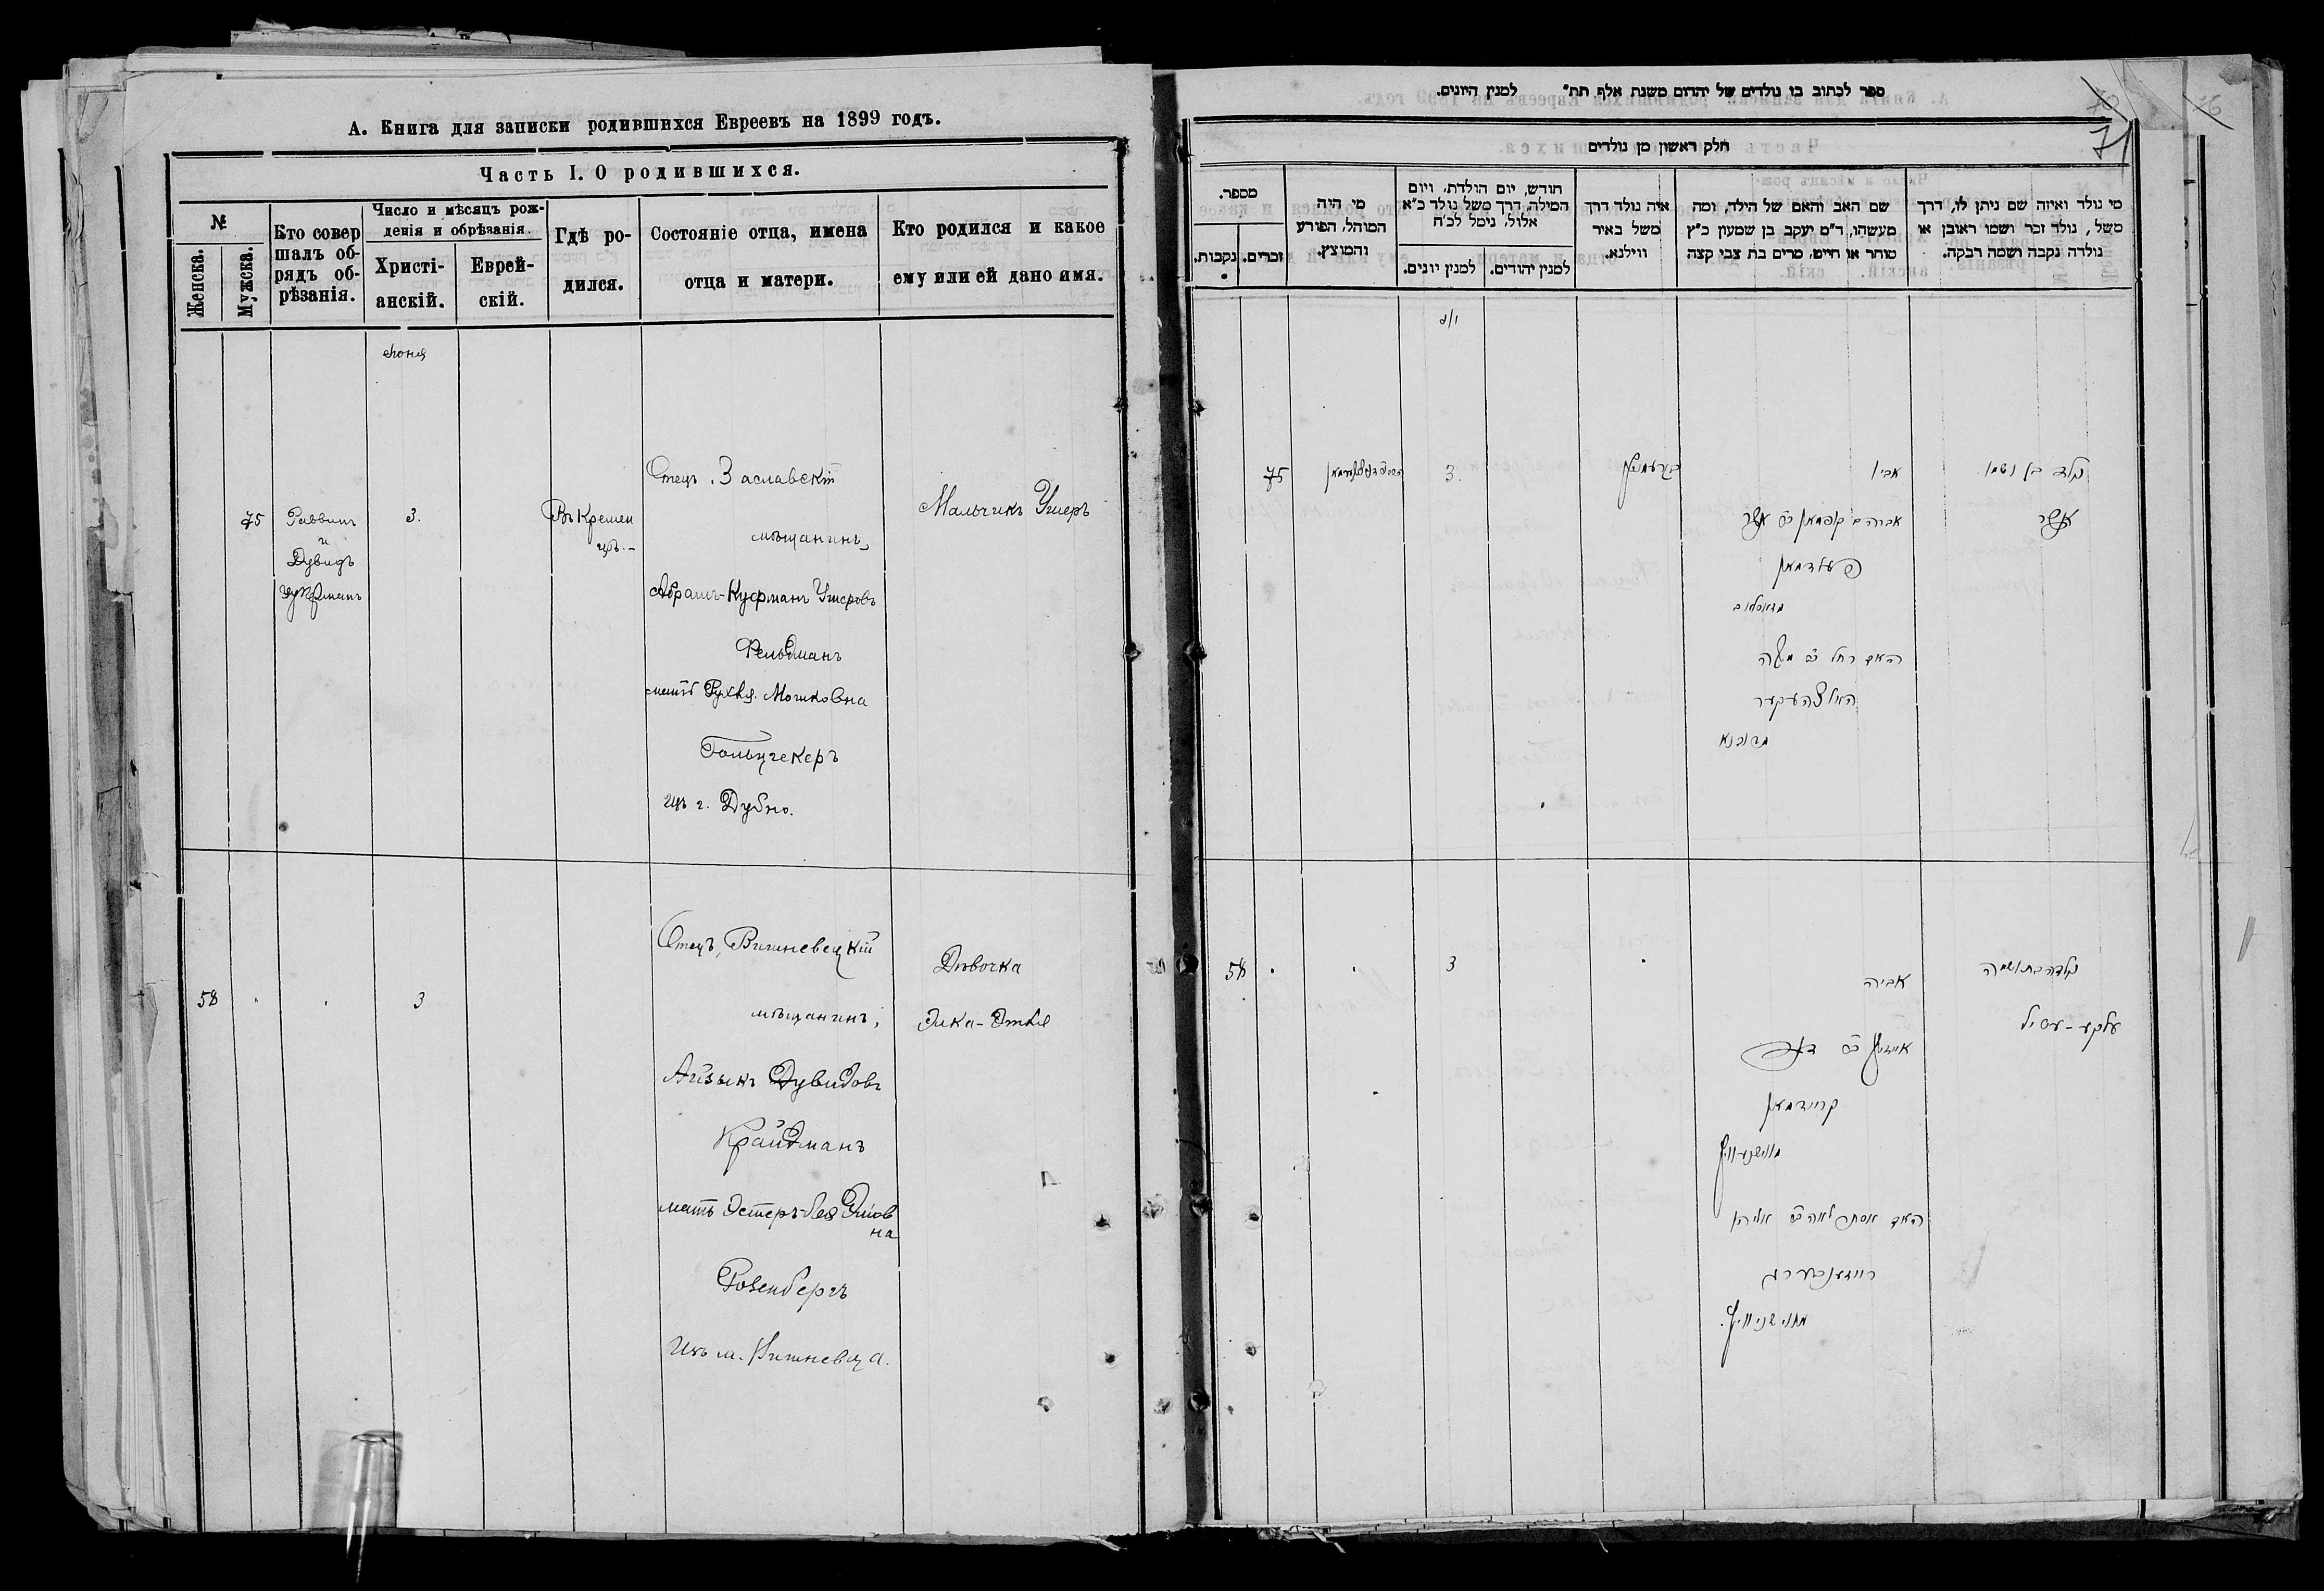 А. Книга для записки родившихся Евреевъ на 1899 годъ.
Часть I. О родившихся.
№
Женска.
Мужска.
Кто совер
шалъ об-
рядъ об-
рѣзанія.
Число и мѣсяцъ рож-
денія и обрѣзанія.
Христі-
анскій.
Еврей-
скій.
Гдѣ ро-
дился.
Состояніе отца, имена
отца и матери.
Кто родился и какое
ему или ей дано имя.
75
Раввинъ
и
Дувидъ
3.
Въ Кремен
цѣ.-
Отецъ, Заславскій
мѣщанинъ,
Абрамъ-Куфманъ Ушеровъ
Фельдманъ
мать Рухля Мошковна
Гольцгекеръ
изъ г. Дубно.
Мальчикъ Ушеръ
58
3
Отецъ, Вишневецкій
мѣщанинъ,
Айзыкъ Дувидовъ
Крайдманъ
мать Эстеръ-Лея Эліов
на
Розенбергъ
изъ м. Вишневца.
Дѣвочка
Элка-Этля
ספר לכתוב בו נולדים של יהדום משנת אלף תת" למנין היונים.
70
71
76
חלק ראשון מן נולדים
מספר.
נקבות.
זכרים.
מי היה
המוהל, הפורע
והמוצץ.
חודש, יום הולדת, ויום
המילה, דרך משל נולד כ"א
אלול, נימל לכ"ח
למנין יונים.
למנין יהודים.
איה נולד דרך
משל באיר
ווילנא.
שם האב והאם של הילד, ומה
מעשהו, ד"מ יעקב בן שמעון כ"ץ
סוחר או חייט, מרים בת צבי קצה
מי נולד ואיזה שם ניתן לו, דרך
משל, נולד זכר ושמו ראובן או
נולדה נקבה ושמה רבקה.
75
3.
אביו
פעלדמאן
האם רחל
האלצהעקער
מדובנא
נולד בן ושמו
אשר
58
3
אביה
קריידמאן
האם אסתר לאה
ראזענבערג
נולדה בת ושמה
עלקע-עטיל